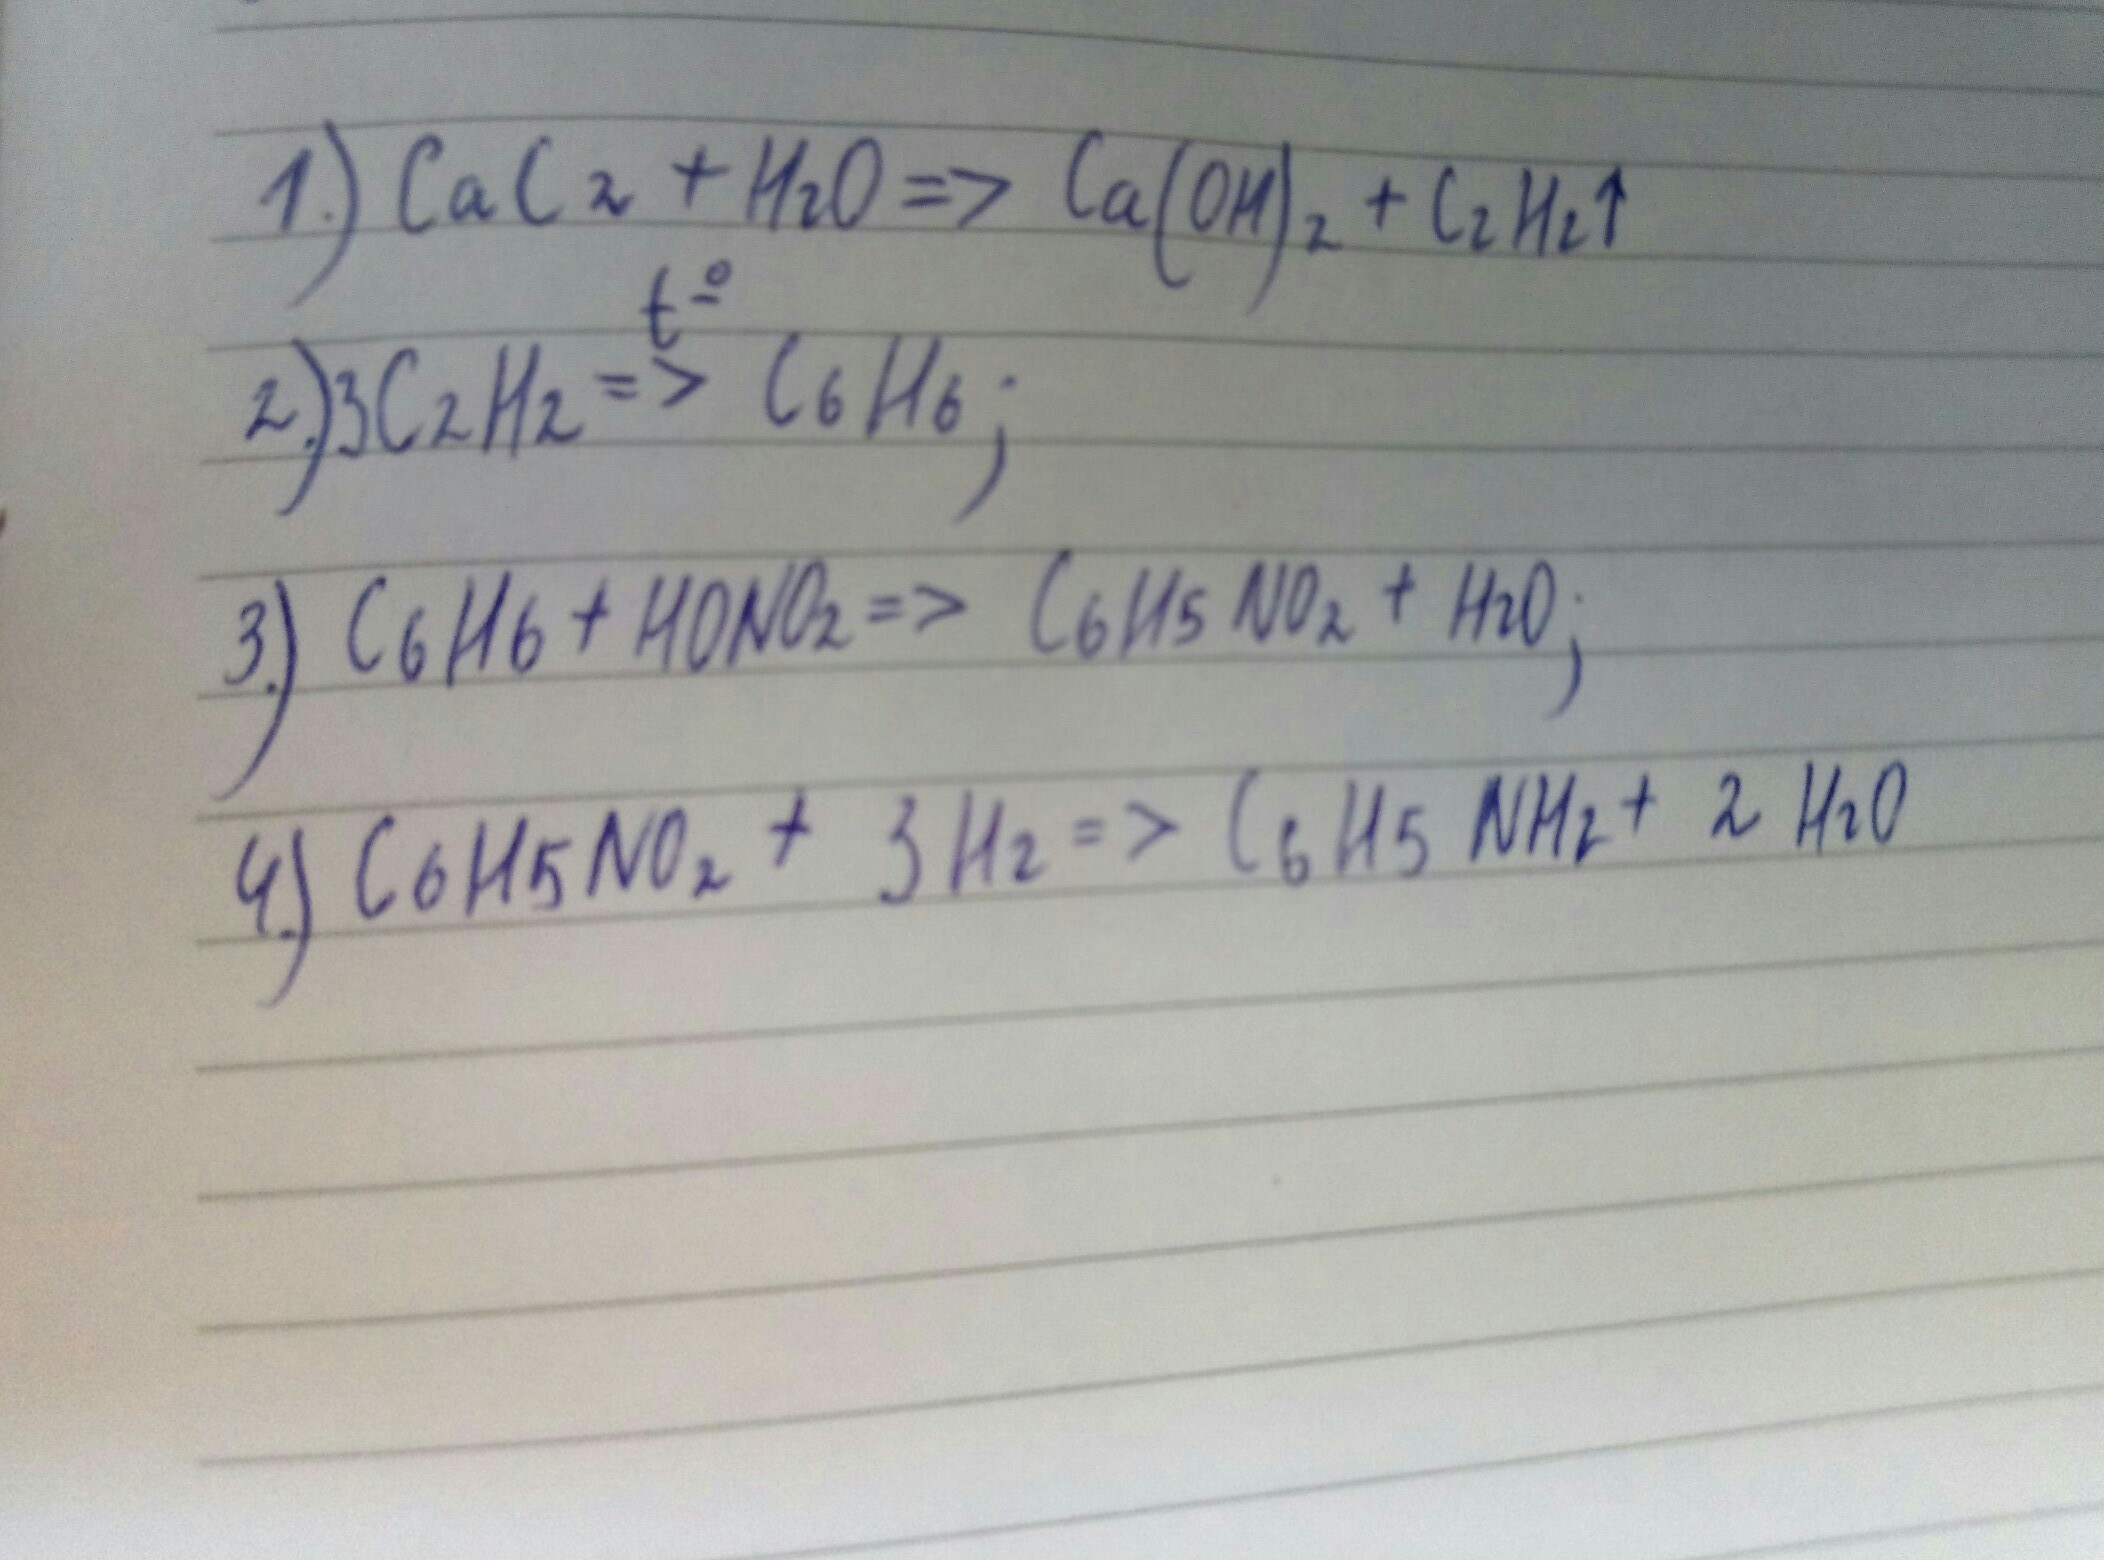 1.) CaC2 + H2O => Ca(OH)2 + C2H2↑
t°
2.) 3C2H2 => C6H6;
3.) C6H6 + HONO2 => C6H5NO2 + H2O;
4.) C6H5NO2 + 3H2 => C6H5NH2 + 2 H2O